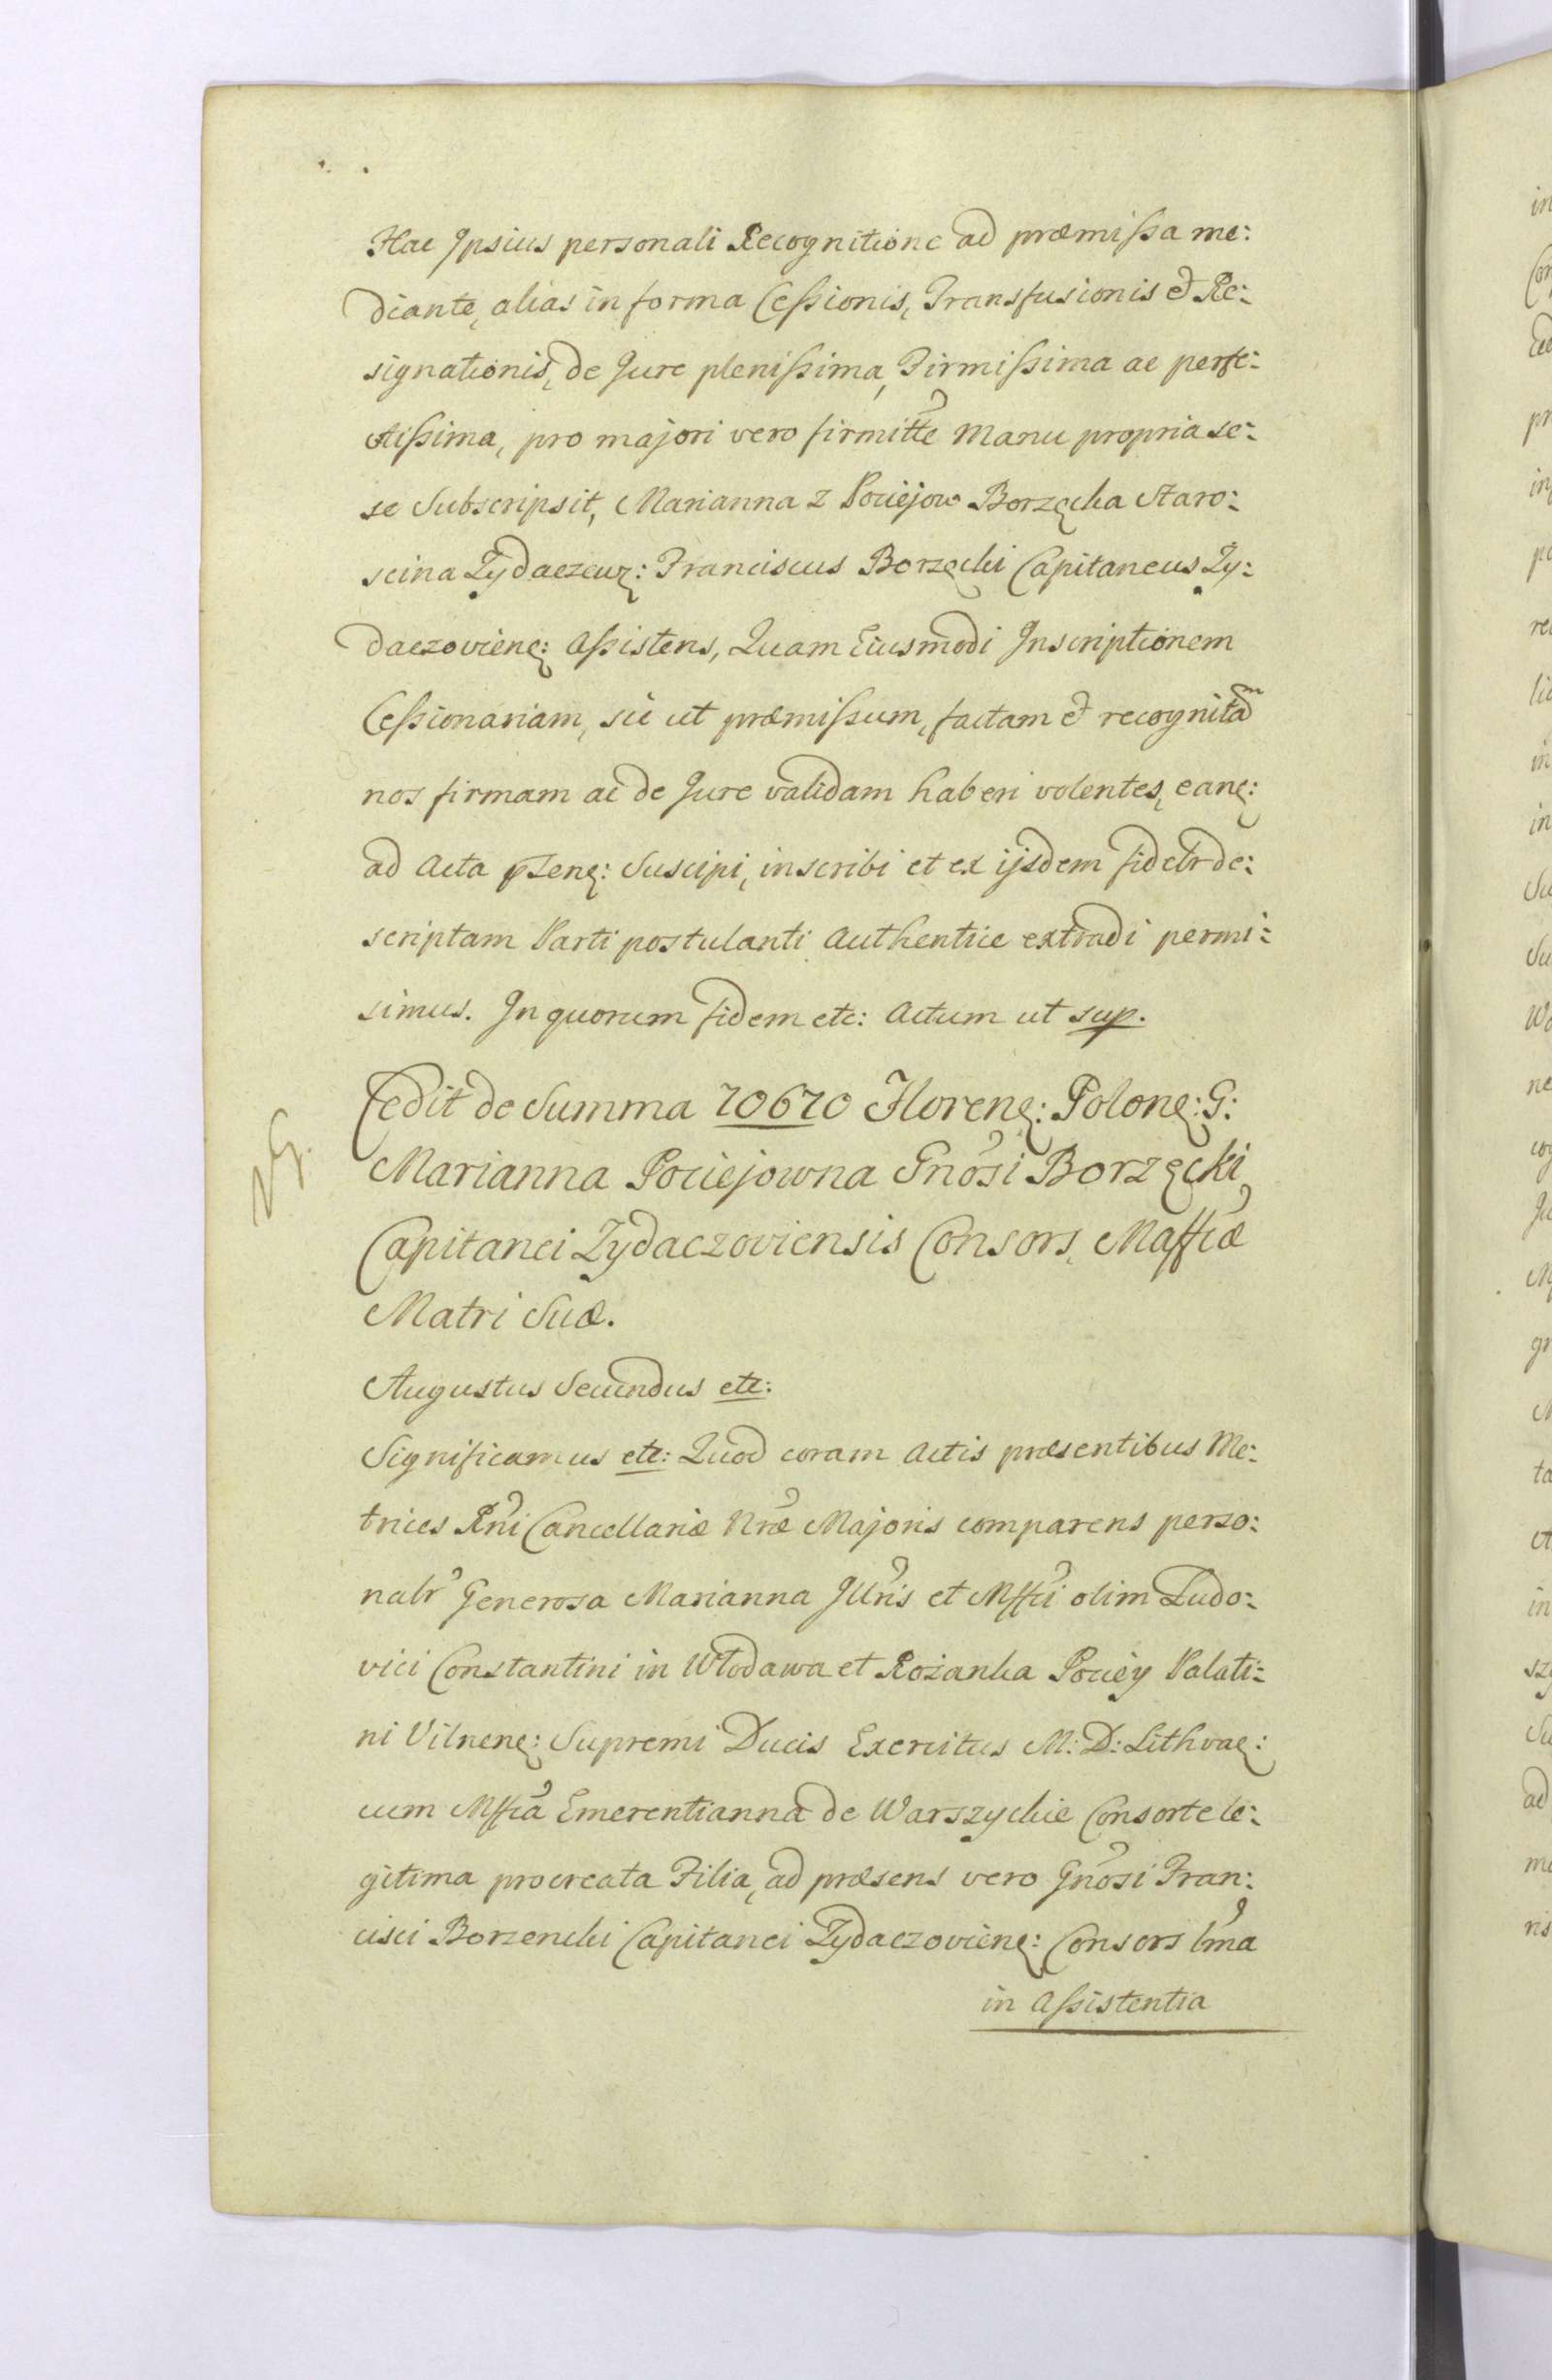 Hac Ipsius personali Recognitione ad præmissa me:
diante, alias in forma Cessionis, Transfusionis et Re:
signationis, de Jure plenissima, Firmissima ac perfe:
ctissima, pro majori vero firmitte manu propria se:
se Subscripsit, Marianna z Pociejow Borzęcka Staro:
scina Żydaczew: Franciscus Borzęcki Capitaneus Ży:
daczovien: Assistens, Quam Eiusmodi Inscriptionem
Cessionariam, sic ut præmissum, factam et recognitam
nos firmam ac de Jure validam haberi volentes, eanq:
ad Acta pszen: Suscipi, inscribi et ex ijsdem fidelr de:
scriptam Parti postulanti Authentice extradi permi:
simus. In quorum fidem etc: Actum ut sup.
Cedit de Summa 70670 Floren: Polon: G:
Marianna Pociejowna Gnosi Borzęcki
Capitanei Żydaczoviensis Consors, Maffcæ
Matri Suæ.
Augustus Secundus etc:
Significamus etc: Quod coram Actis præsentibus Me:
trices Rni Cancellariæ Nræ Majoris comparens perso:
nalr Generosa Marianna Illris et Mffci olim Ludo:
vici Constantini in Włodawa et Rożanka Pociey Palati:
ni Vilnen: Supremi Ducis Exercitus M: D: Lithvae:
cum Mffca Emerentianna de Warszyckie Consorte le:
gitima procreata Filia, ad præsens vero Gnosi Fran:
cisci Borzencki Capitanei Żydaczovien: Consors lma
in Assistentia